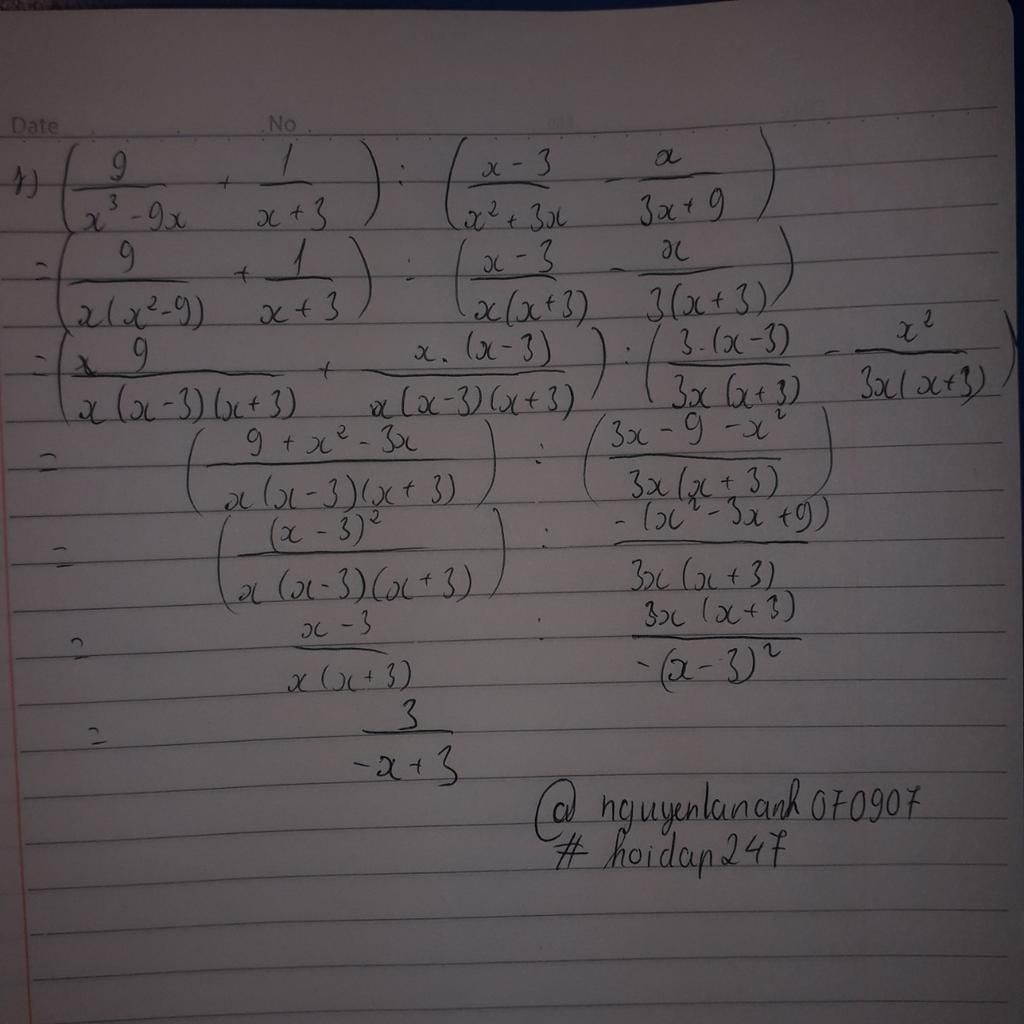 Date No
1) (9/(x³ - 9x) + 1/(x + 3)) : ((x - 3)/(x² + 3x) - x/(3x + 9))
= (9/(x(x² - 9)) + 1/(x + 3)) : ((x - 3)/(x(x + 3)) - x/(3(x + 3)))
= (9/(x(x - 3)(x + 3)) + x.(x - 3)/(x(x - 3)(x + 3))) : (3.(x - 3)/(3x(x + 3)) - x²/(3x(x + 3)))
= ((9 + x² - 3x)/(x(x - 3)(x + 3))) : ((3x - 9 - x²)/(3x(x + 3)))
= ((x - 3)²/(x(x - 3)(x + 3))) : -(x² - 3x + 9)/(3x(x + 3))
= (x - 3)/(x(x + 3)) : 3x(x + 3)/(-(x - 3)²)
= 3/(-x + 3)
@ nguyenlananh070907
# hoidap247